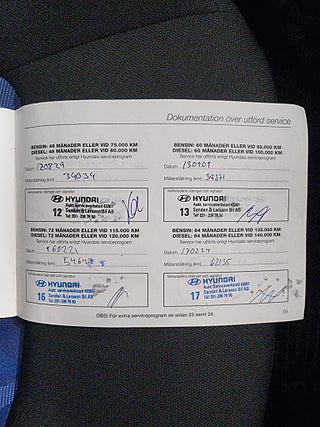 Dokumentation över utförd service
BENSIN: 48 MÅNADER ELLER VID 75.000 KM
DIESEL: 48 MÅNADER ELLER VID 80.000 KM
Service har utförts enligt Hyundais serviceprogram
Datum 120829
Mätarställning (km) 34034
Verkstadens stämpel och signatur
HYUNDAI
Aukt. Serviceverkstad 42061
Sanden & Larsson Bil AB
12
BENSIN: 60 MÅNADER ELLER VID 95.000 KM
DIESEL: 60 MÅNADER ELLER VID 100.000 KM
Service har utförts enligt Hyundais serviceprogram
Datum
Mätarställning (km)
Verkstadens stämpel och signatur
HYUNDAI
Aukt. Serviceverkstad 42061
Sanden & Larsson Bil AB
13
BENSIN: 72 MÅNADER ELLER VID 115.000 KM
DIESEL: 72 MÅNADER ELLER VID 120.000 KM
Service har utförts enligt Hyundais serviceprogram
Datum
Mätarställning (km)
Verkstadens stämpel och signatur
HYUNDAI
Aukt. Serviceverkstad 42061
Sanden & Larsson Bil AB
16
BENSIN: 84 MÅNADER ELLER VID 135.000 KM
Service har utförts enligt Hyundais serviceprogram
Datum 170224
Mätarställning (km) 62155
Verkstadens stämpel och signatur
HYUNDAI
Aukt. Serviceverkstad 42061
Sanden & Larsson Bil AB
17
OBS! För extra serviceprogram se sidan 23 samt 24.
15